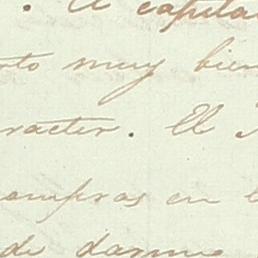 . El capita
rto muy bien
racter. El
ompras en l
de darme